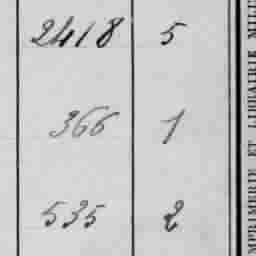 2418 5
366 1
535 2
MPRIMERIE ET LIBRAIRIE MIL